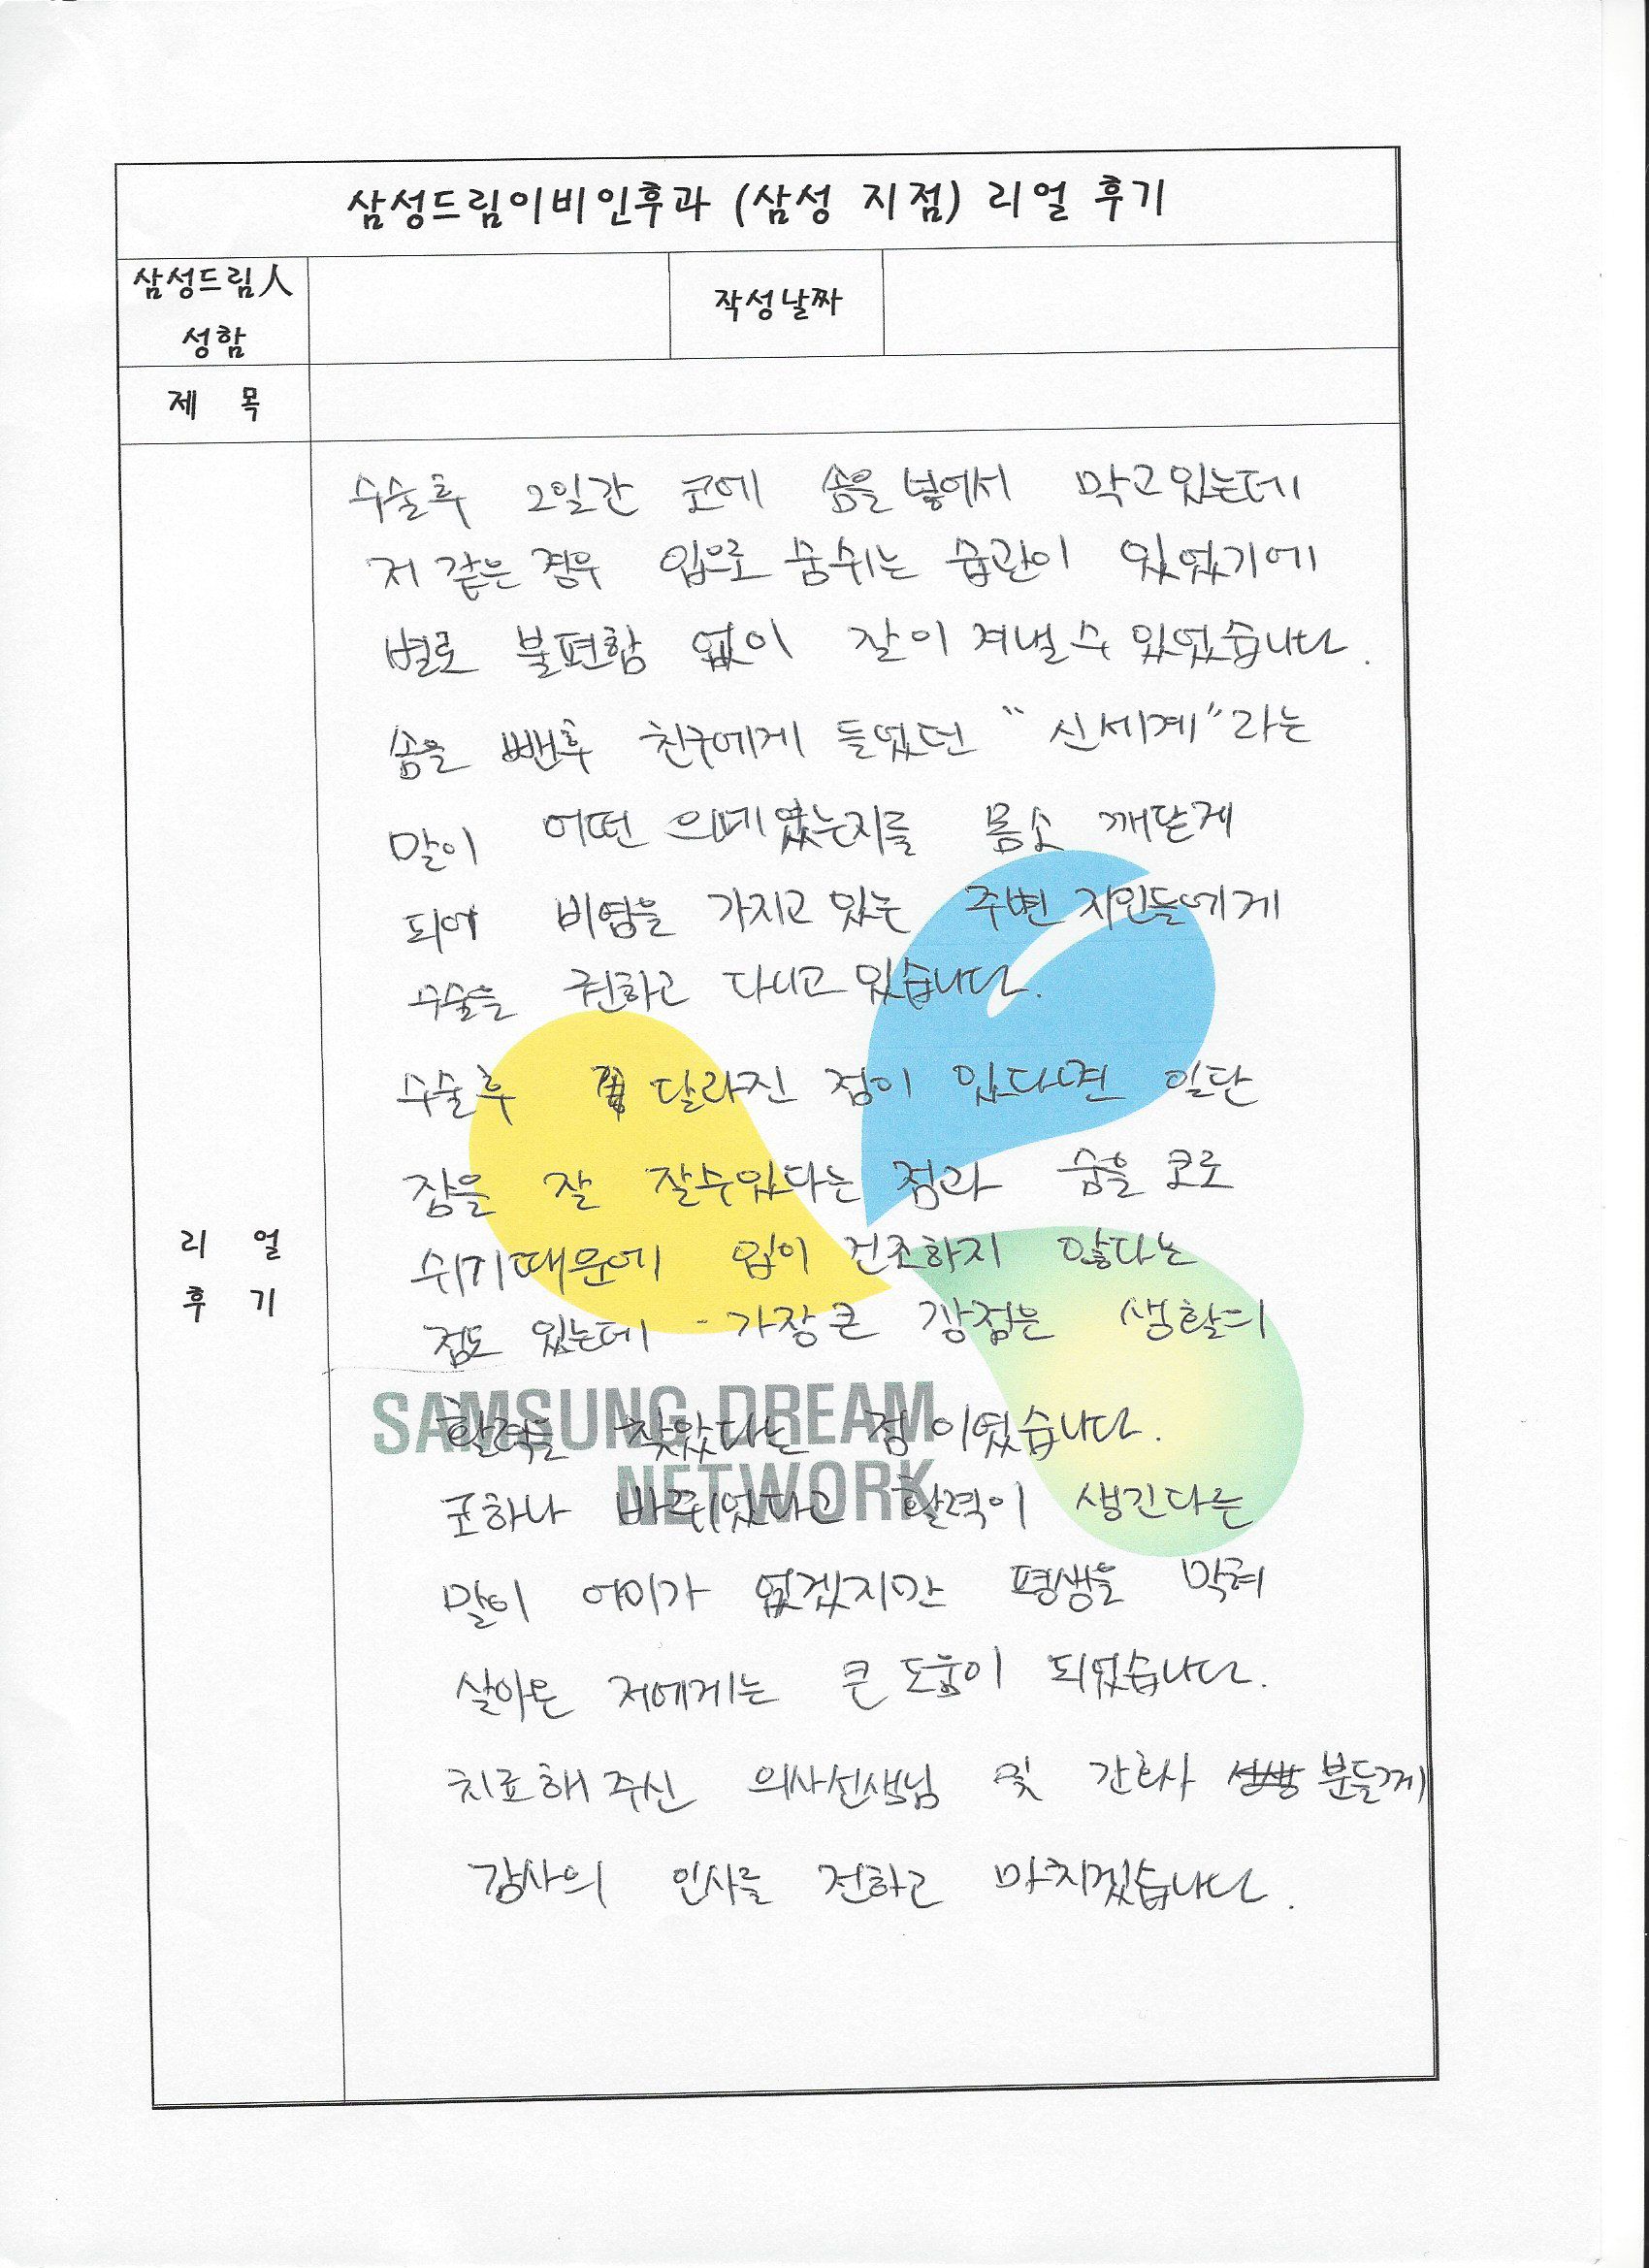 삼성드림이비인후과 (삼성 지점) 리얼 후기
삼성드림人
성함
작성날짜
제 목
수술후 2일간 코에 솜을 넣어서 막고있는데
저 같은 경우 입으로 숨쉬는 습관이 있었기에
별로 불편함 없이 잘이겨낼수 있었습니다.
솜을 뺀후 친구에게 들었던 "신세계"라는
말이 어떤 의미였는지를 몸소 깨닫게
되어 비염을 가지고 있는 주변 지인들에게
수술을 권하고 다니고 있습니다.
수술후 달라진 점이 있다면 일단
잠을 잘 잘수있다는 점과 숨을 코로
쉬기때문에 입이 건조하지 않다는
점도 있는데 가장큰 강점은 생활의
활력을 찾았다는 점이였습니다.
코하나 바뀌었다고 활력이 생긴다는
말이 어이가 없겠지만 평생을 막혀
살아온 저에게는 큰 도움이 되었습니다.
치료해주신 의사선생님 및 간호사 분들께
감사의 인사를 전하고 마치겠습니다.
리 얼
후 기
SAMSUNG DREAM
NETWORK